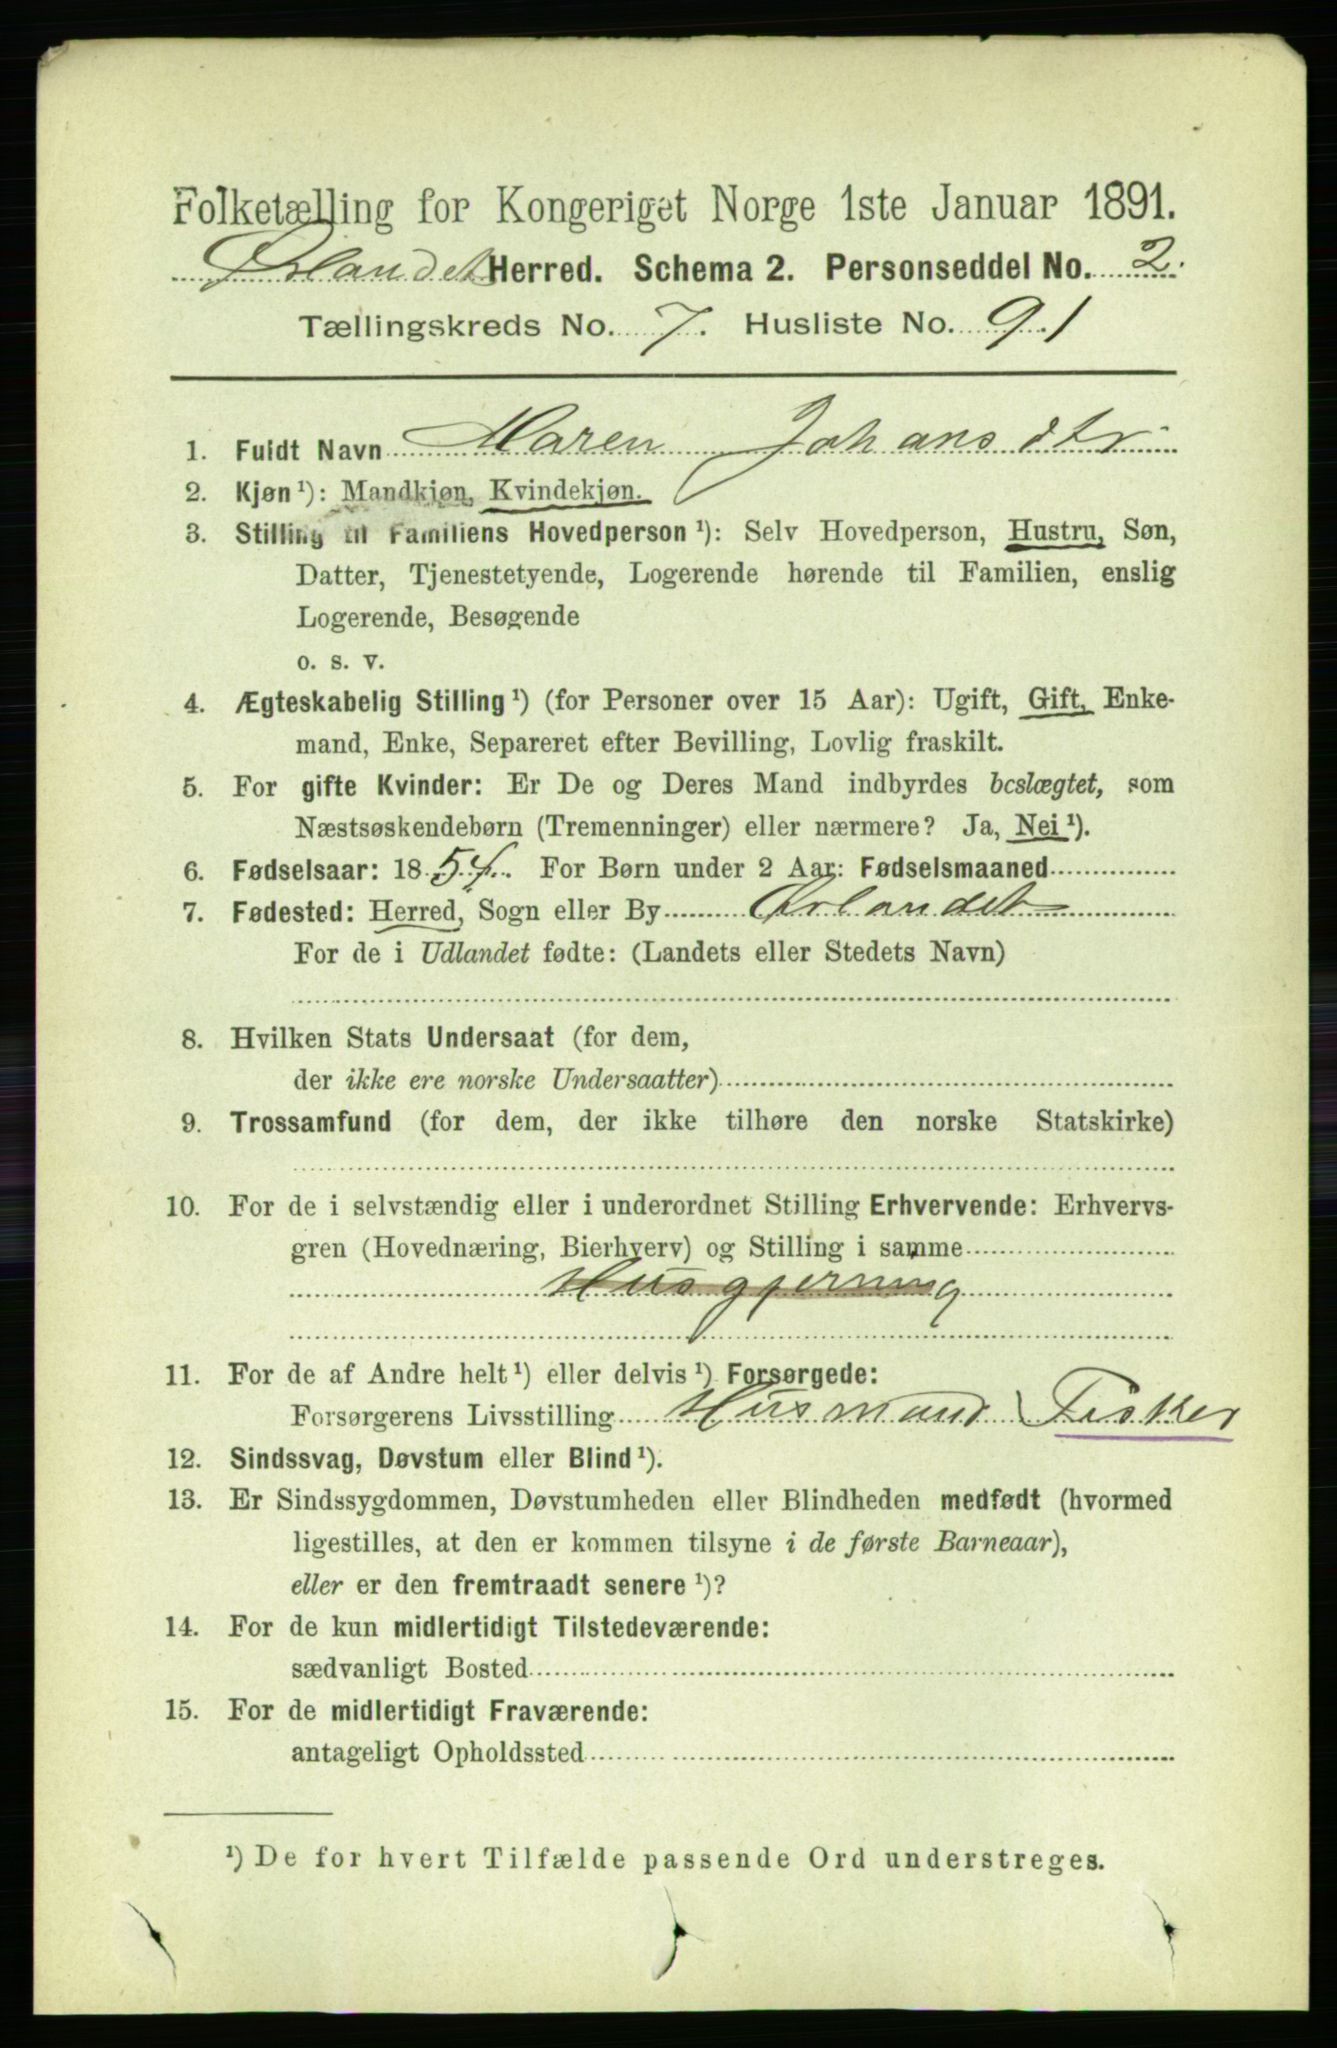 Folketælling for Kongeriget Norge 1ste Januar 1891.
Ørlandet Herred. Schema 2. Personseddel No. 2.
Tællingskreds No. 7. Husliste No. 91
1. Fuldt Navn Maren Johansdtr
2. Kjøn¹): Mandkjøn, Kvindekjøn.
3. Stilling til Familiens Hovedperson¹): Selv Hovedperson, Hustru, Søn,
Datter, Tjenestetyende, Logerende hørende til Familien, enslig
Logerende, Besøgende
o. s. v.
4. Ægteskabelig Stilling¹) (for Personer over 15 Aar): Ugift, Gift, Enke-
mand, Enke, Separeret efter Bevilling, Lovlig fraskilt.
5. For gifte Kvinder: Er De og Deres Mand indbyrdes beslægtet, som
Næstsøskendebørn (Tremenninger) eller nærmere? Ja, Nei¹).
6. Fødselsaar: 1854. For Børn under 2 Aar: Fødselsmaaned
7. Fødested: Herred, Sogn eller By Ørlandet
For de i Udlandet fødte: (Landets eller Stedets Navn)
8. Hvilken Stats Undersaat (for dem,
der ikke ere norske Undersaatter)
9. Trossamfund (for dem, der ikke tilhøre den norske Statskirke)
10. For de i selvstændig eller i underordnet Stilling Erhvervende: Erhvervs-
gren (Hovednæring, Bierhverv) og Stilling i samme
Husgjerning
11. For de af Andre helt¹) eller delvis¹) Forsørgede:
Forsørgerens Livsstilling Husmand Fisker
12. Sindssvag, Døvstum eller Blind¹).
13. Er Sindssygdommen, Døvstumheden eller Blindheden medfødt (hvormed
ligestilles, at den er kommen tilsyne i de første Barneaar),
eller er den fremtraadt senere¹)?
14. For de kun midlertidigt Tilstedeværende:
sædvanligt Bosted
15. For de midlertidigt Fraværende:
antageligt Opholdssted
¹) De for hvert Tilfælde passende Ord understreges.